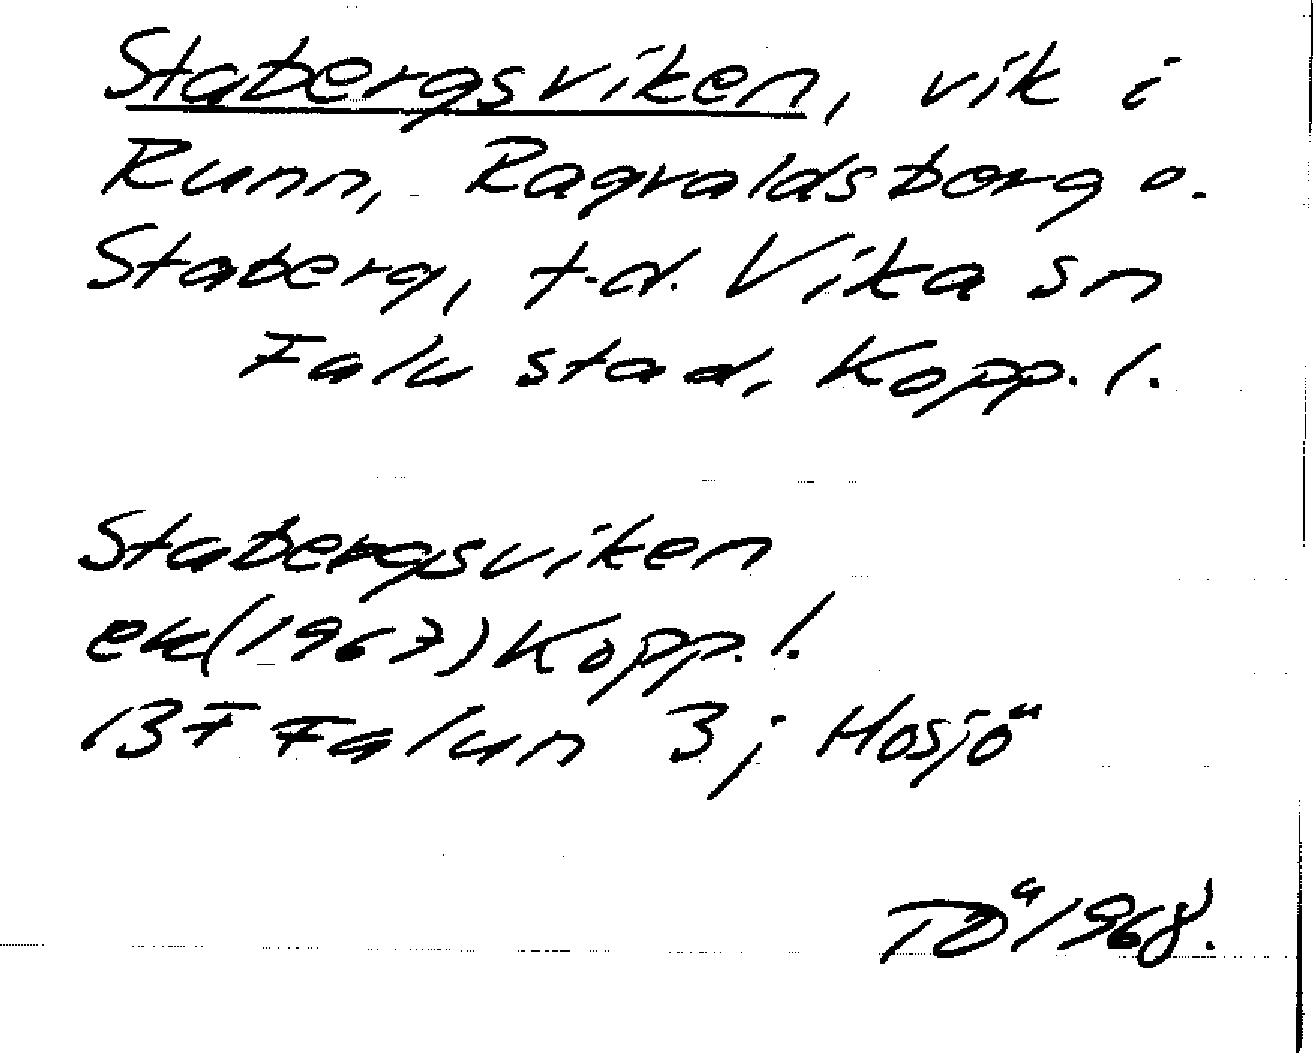 Stabergsviken, vik i
Runn, Ragvaldsberg o.
Staberg, t.d. Vika sn
Falu stad, Kopp. l.
Stabergsviken
ek (1967) Kopp. l.
13F Falun 3j Hosjö
TÖ 1968.